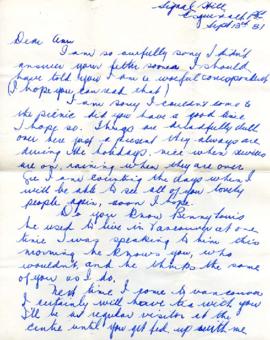 Signal Hill
Sept 13th 51
Dear Ann
I am so awfully sorry I didn't
answer your letter sooner I should
have told you I am a woeful correspondent
(I hope you can read that)
I am sorry I couldn't come to
the picnic did you have a good time
I hope so. Things are dreadfully dull
over here just at present they always are
during the holidays, nice when
are on, raining when they are over.
I am counting the days when I
will be able to see all of you lovely
people again, soon I hope.
Do you know Benny Louis
he used to live in Vancouver at one
time I was speaking to him this
morning he knows you, who
wouldn't, and he thinks the same
of you as I do.
Next time I come to Vancouver
I certainly will have tea with you
I'll be a regular visitor at the
centre until you get fed up with me